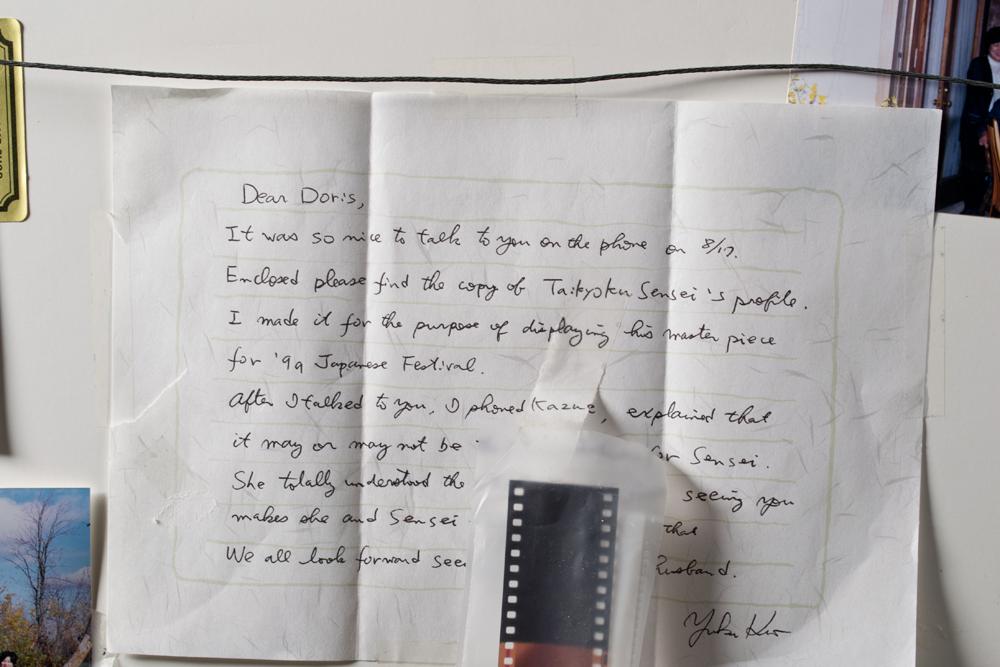 Dear Doris,
It was so nice to talk to you on the phone on 8/17.
Enclosed please find the copy of Taikyoku Sensei's profile.
I made it for the purpose of displaying his master piece
for '99 Japanese Festival.
After I talked to you, I phoned Kazue, explained that
it may or may not be for Sensei.
She totally understood the seeing you
makes she and Sensei that
We all look forward husband.